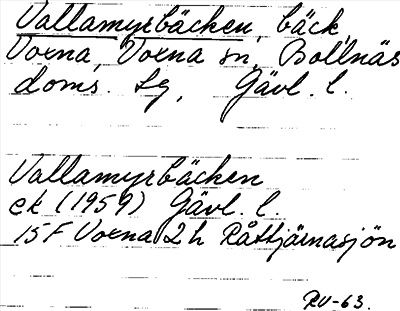 Vallamyrbäcken, bäck,
Voxna, Voxna sn, Bollnäs
doms. lg, Gävl. l.
Vallamyrbäcken
ek (1959) Gävl. l.
15F Voxna 2h Råttjärnasjön
RU-63.